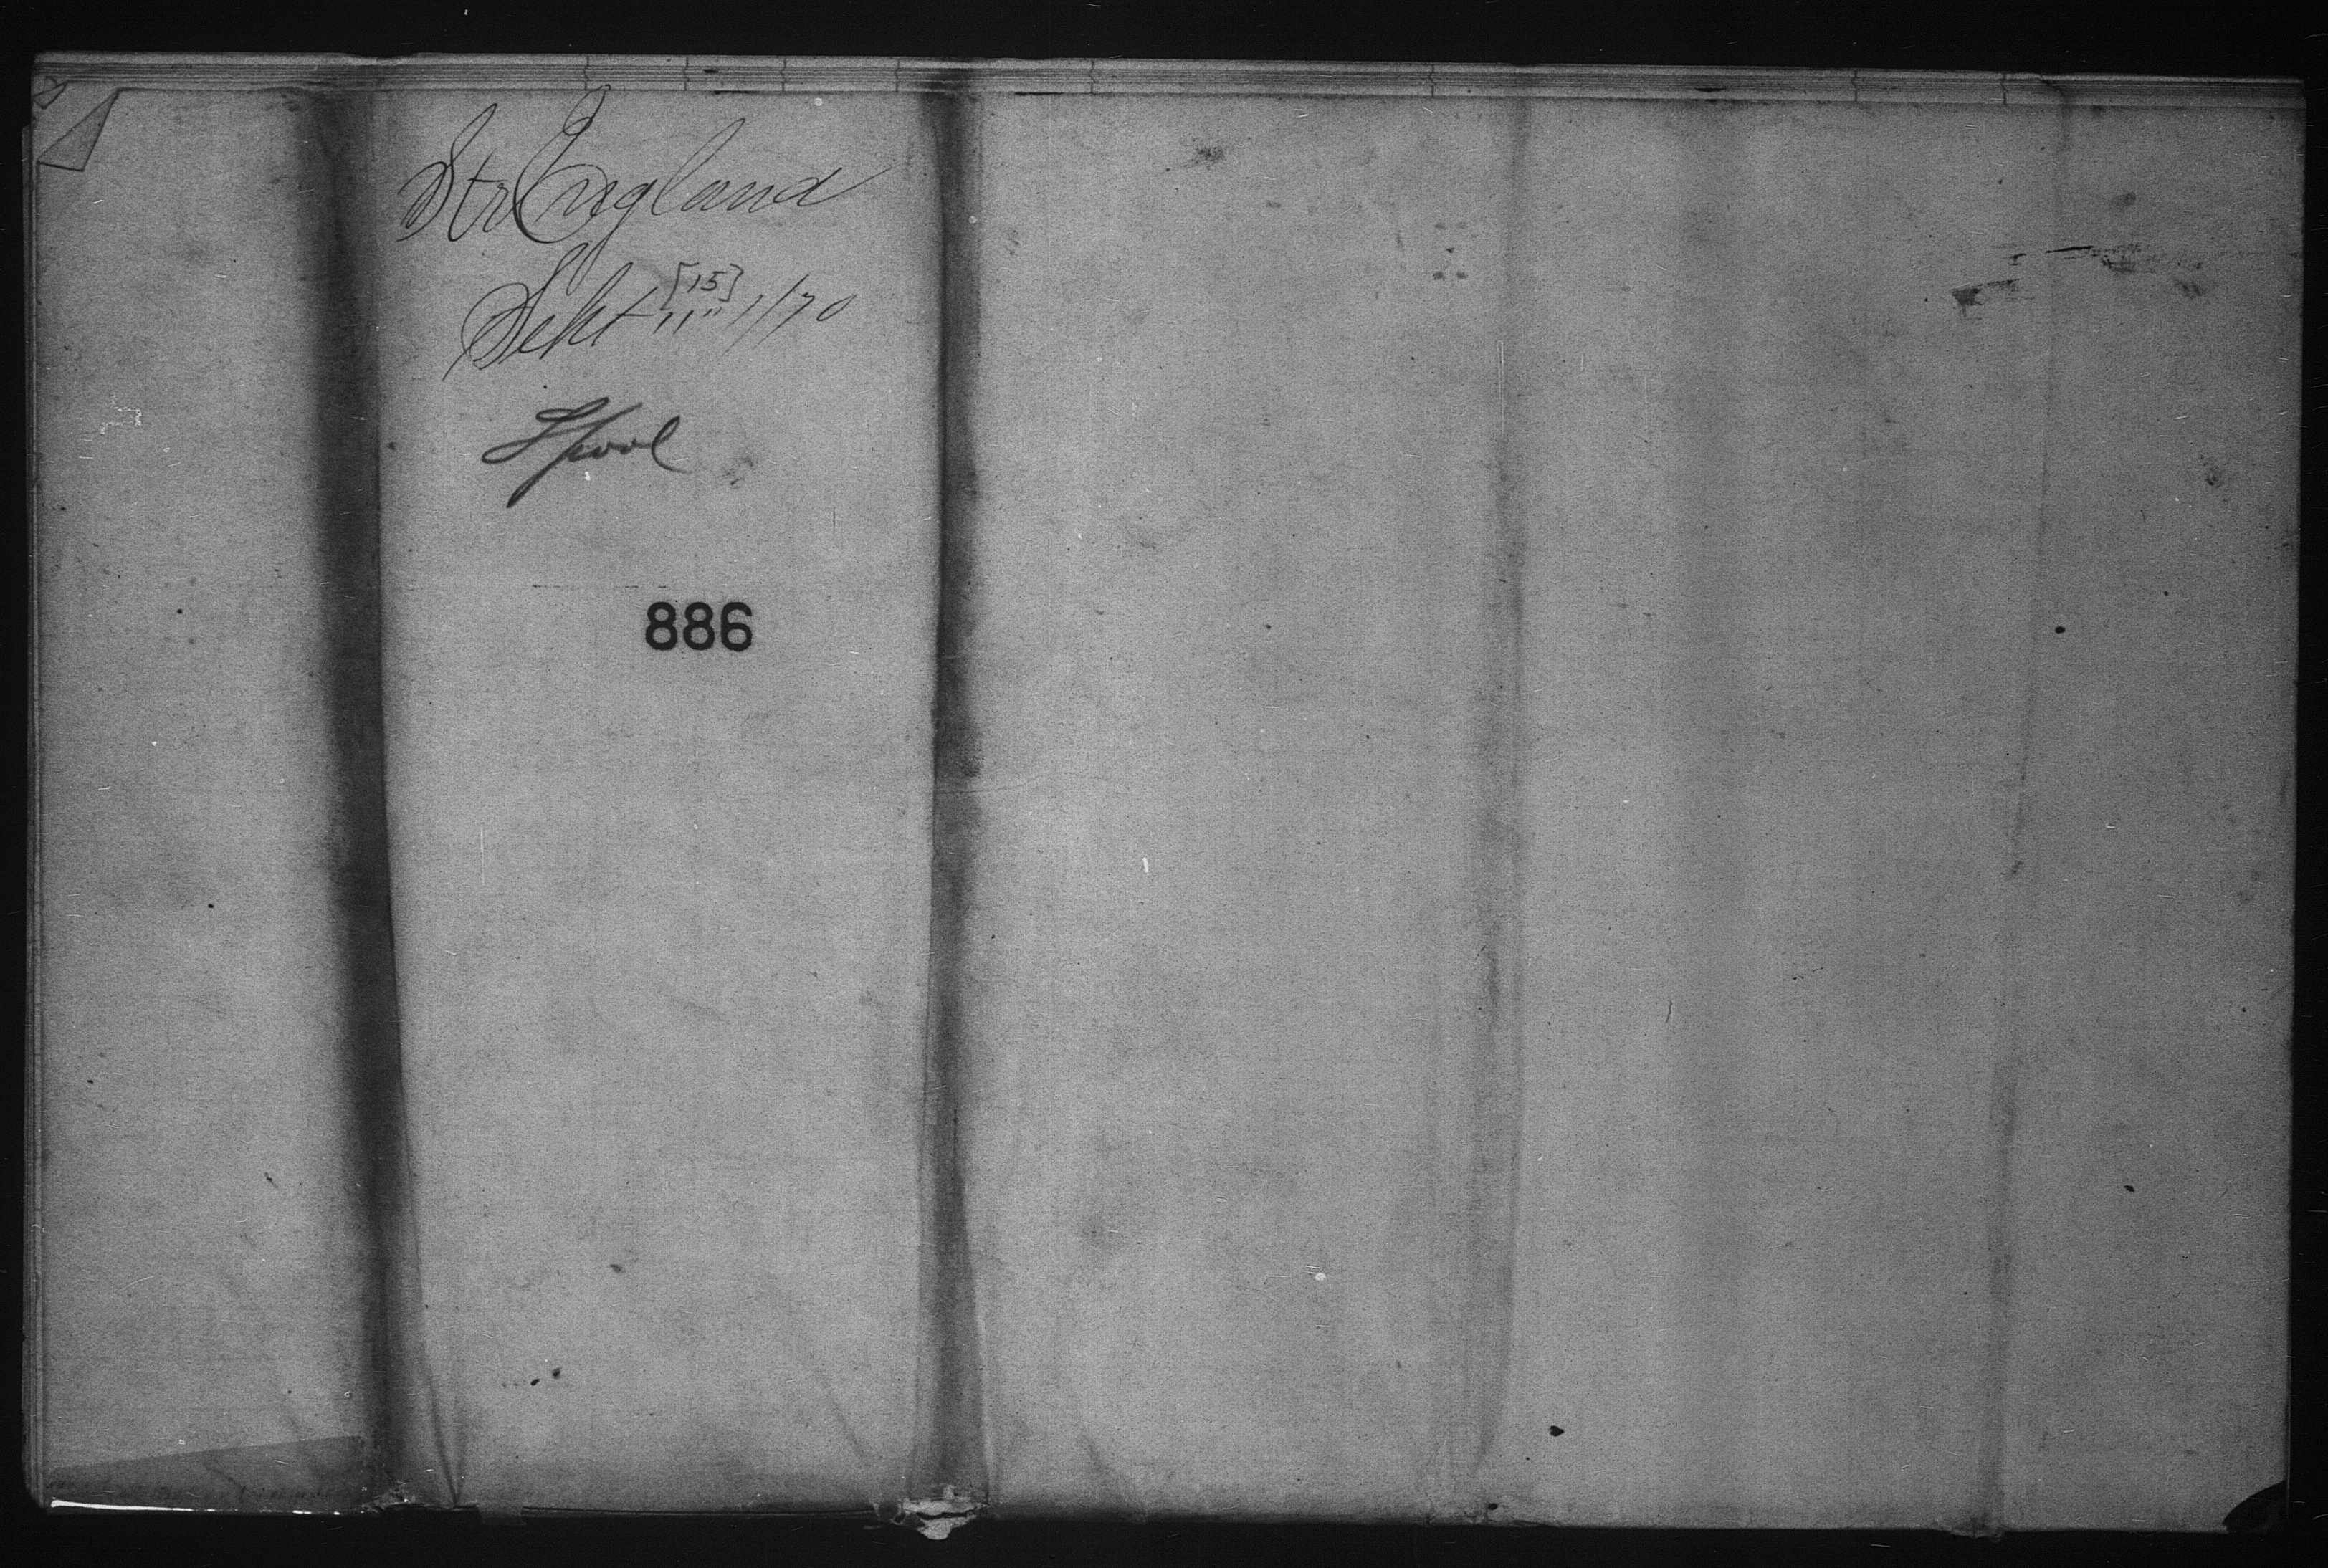 Str England
Sept [15] 11" 1/70
Lpool
886